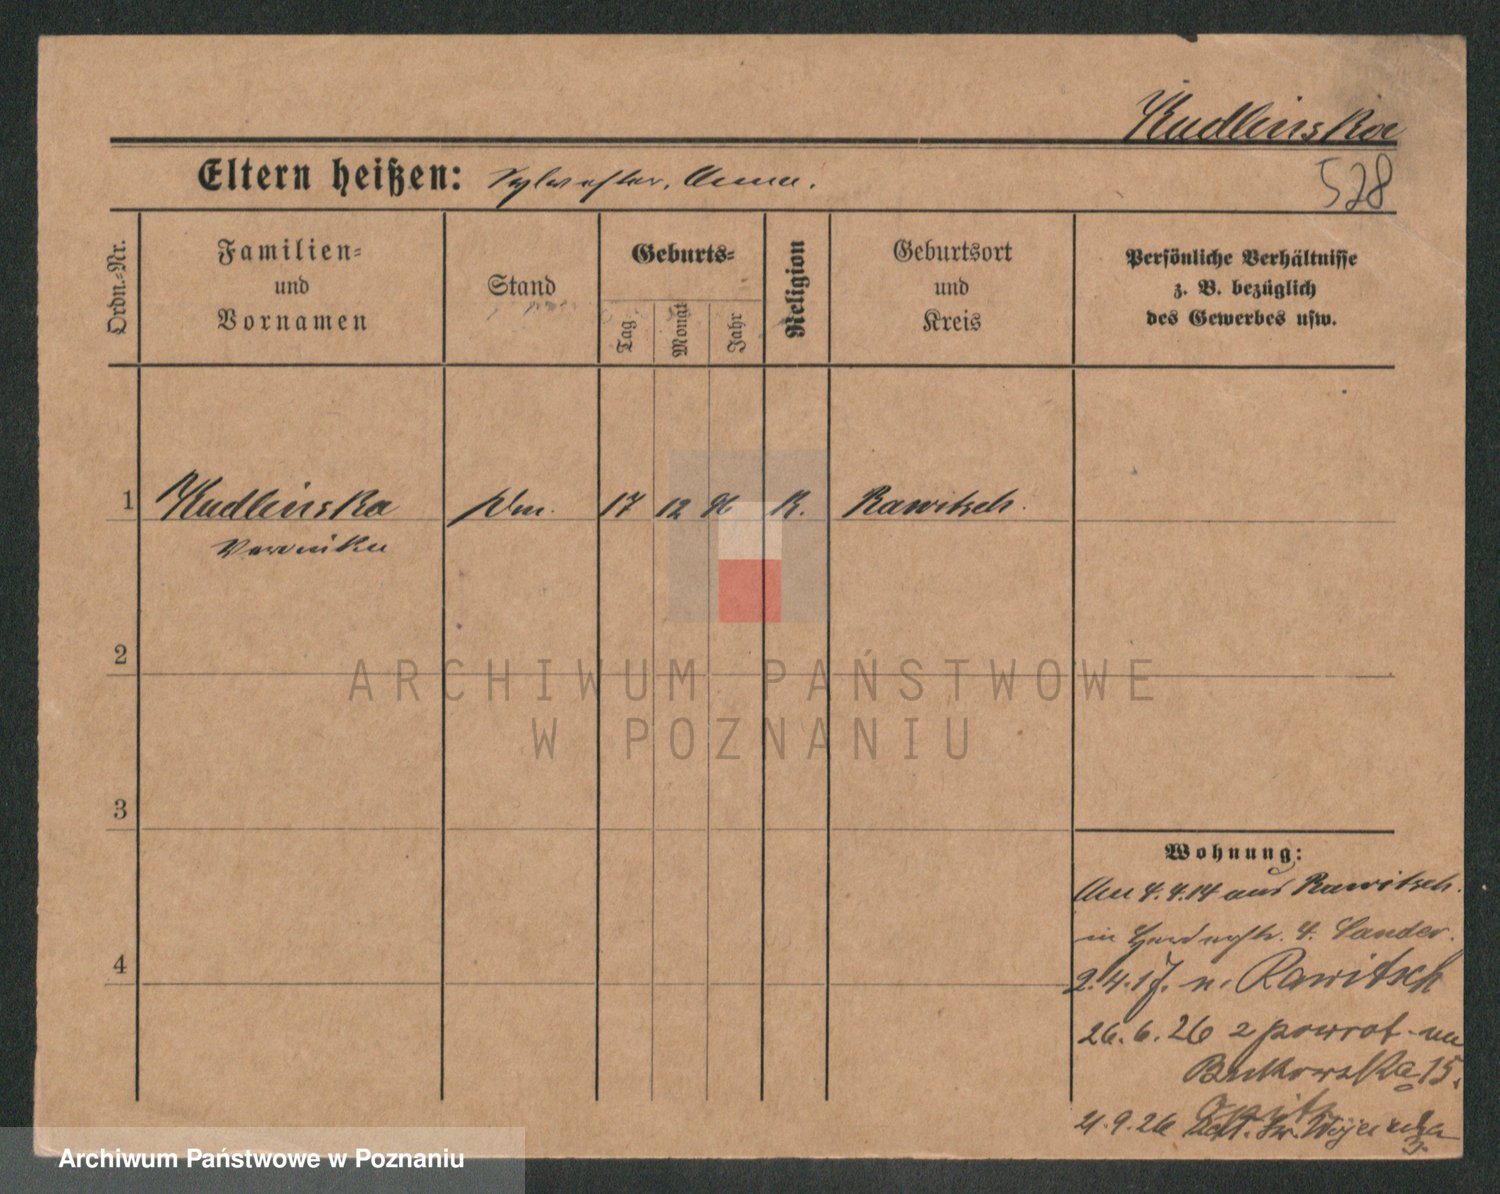 Kudlinska
528
Eltern heißen: Sylvester, Anna.
Ordn.=Nr.
Familien=
und
Vornamen
Stand
Geburts=
Tag
Monat
Jahr
Religion
Geburtsort
und
Kreis
Persönliche Verhältnisse
z. B. bezüglich
des Gewerbes usw.
1 Kudlinska 17 12 96 K. Rawitsch.
Veronika
2
ARCHIWUM PAŃSTWOWE
W POZNANIU
3
Wohnung:
4.4.14 aus Rawitsch.
in 4. Sander.
4
2.4.17. n. Rawitsch
26.6.26 z powrot. na
Bukowska 15.
21.9.26
Archiwum Państwowe w Poznaniu